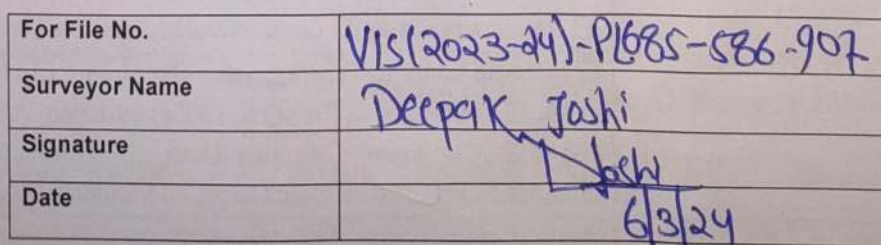 For File No. VIS(2023-24)-PL685-586-907
Surveyor Name Deepak Joshi
Signature Joshi
Date 6/3/24